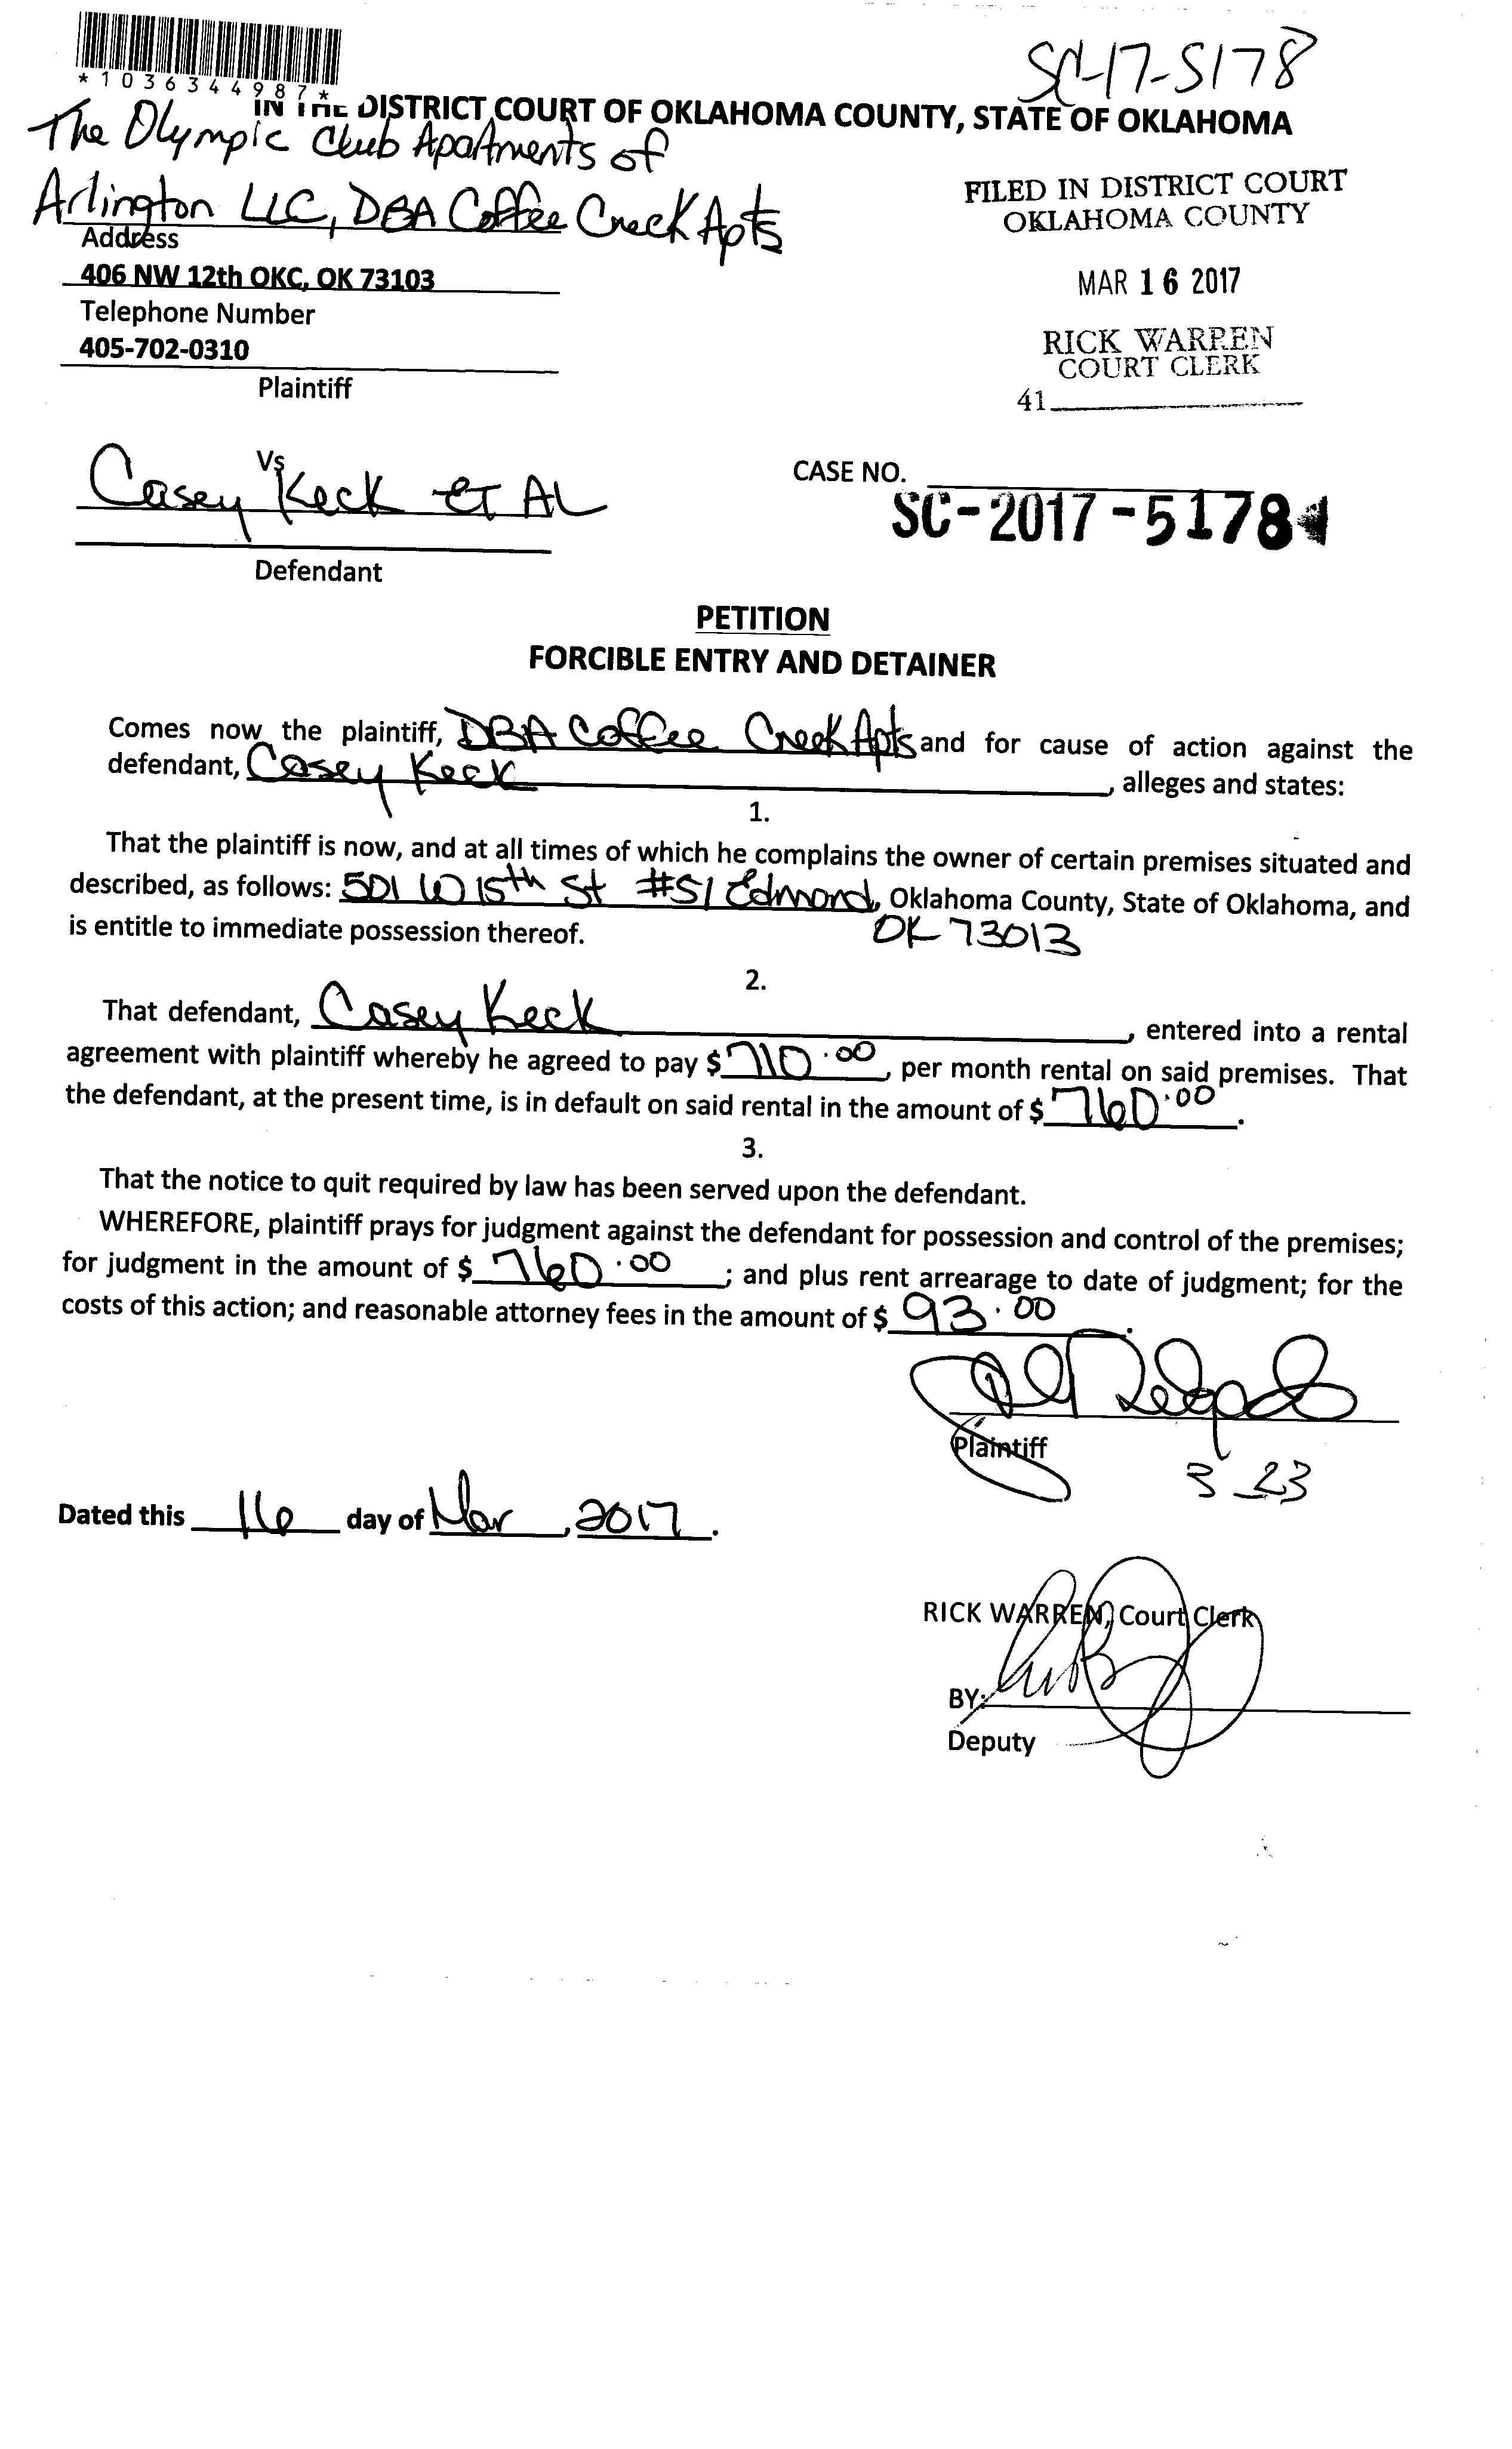 SC-17-5178
*1036344987*
IN THE DISTRICT COURT OF OKLAHOMA COUNTY, STATE OF OKLAHOMA
The Olympic Club Apartments of
Arlington LLC, DBA Coffee Creek Apts
Address
406 NW 12th OKC, OK 73103
Telephone Number
405-702-0310
Plaintiff
FILED IN DISTRICT COURT
OKLAHOMA COUNTY
MAR 16 2017
RICK WARREN
COURT CLERK
41
Vs
Casey Keck et AL
Defendant
CASE NO.
SC-2017-5178
PETITION
FORCIBLE ENTRY AND DETAINER
Comes now the plaintiff, DBA Coffee Creek Apts and for cause of action against the
defendant, Casey Keck, alleges and states:
1.
That the plaintiff is now, and at all times of which he complains the owner of certain premises situated and
described, as follows: 501 W 15th St #51 Edmond, Oklahoma County, State of Oklahoma, and
OK 73013
is entitle to immediate possession thereof.
2.
That defendant, Casey Keck, entered into a rental
agreement with plaintiff whereby he agreed to pay $710.00, per month rental on said premises. That
the defendant, at the present time, is in default on said rental in the amount of $760.00.
3.
That the notice to quit required by law has been served upon the defendant.
WHEREFORE, plaintiff prays for judgment against the defendant for possession and control of the premises;
for judgment in the amount of $760.00; and plus rent arrearage to date of judgment; for the
costs of this action; and reasonable attorney fees in the amount of $93.00.
Plaintiff
3_23
Dated this 16 day of Mar, 2017.
RICK WARREN, Court Clerk
BY:
Deputy